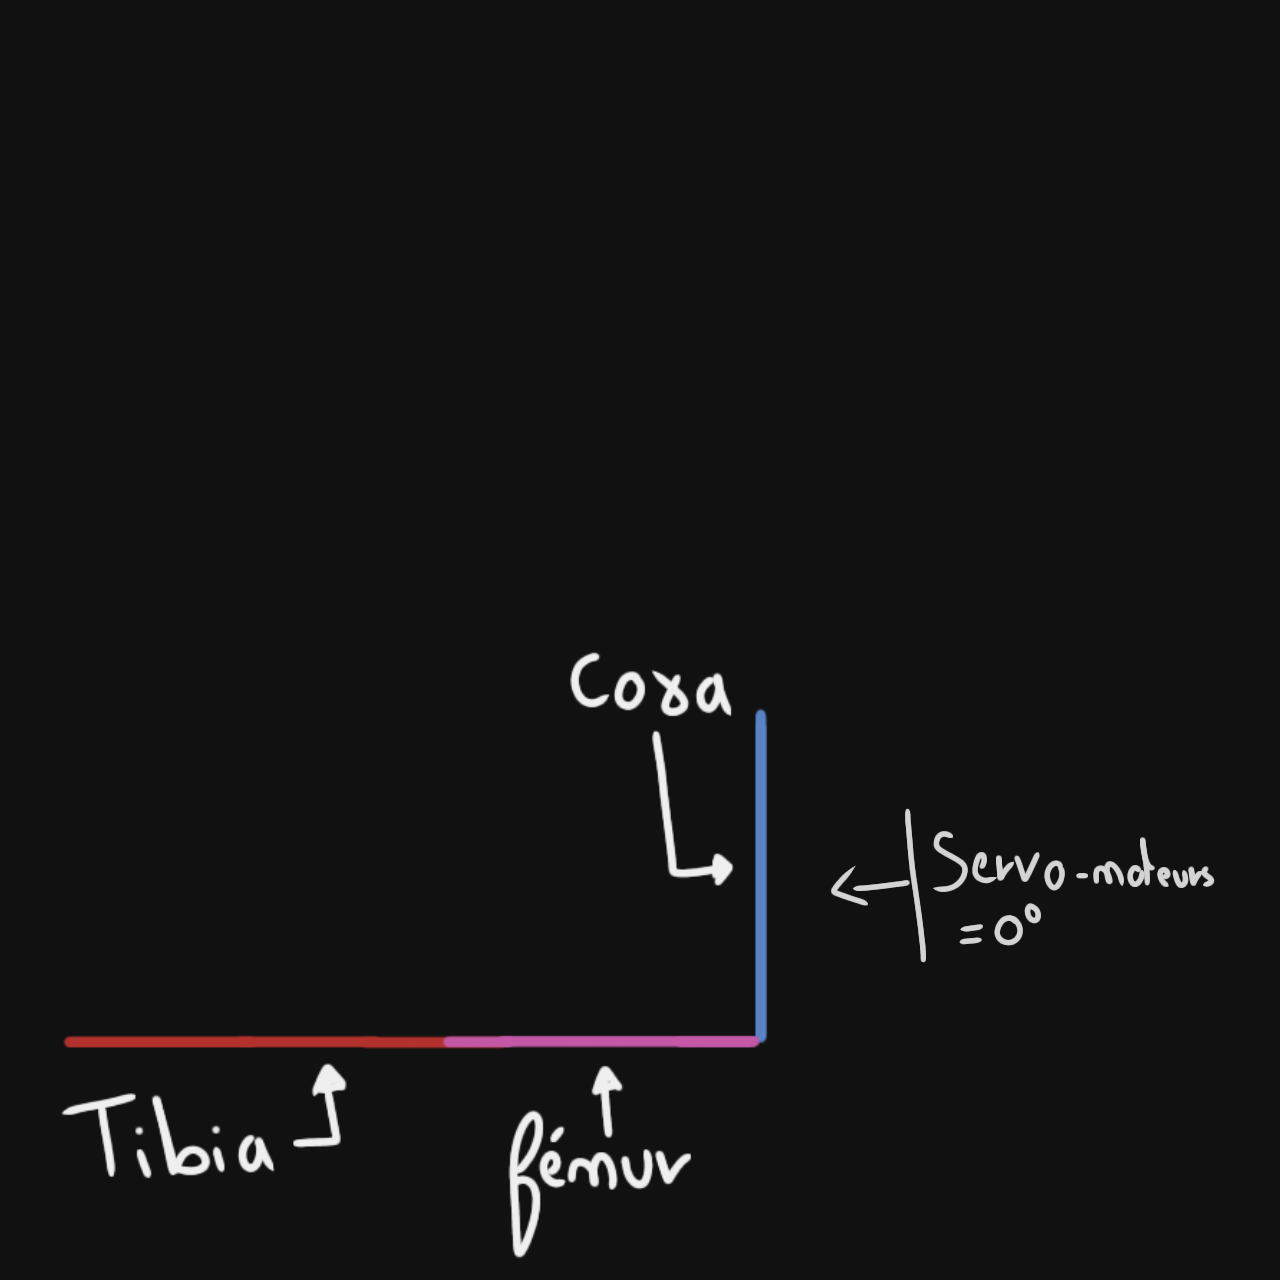 Coxa
Servo-moteurs
= 0°
Tibia
fémur